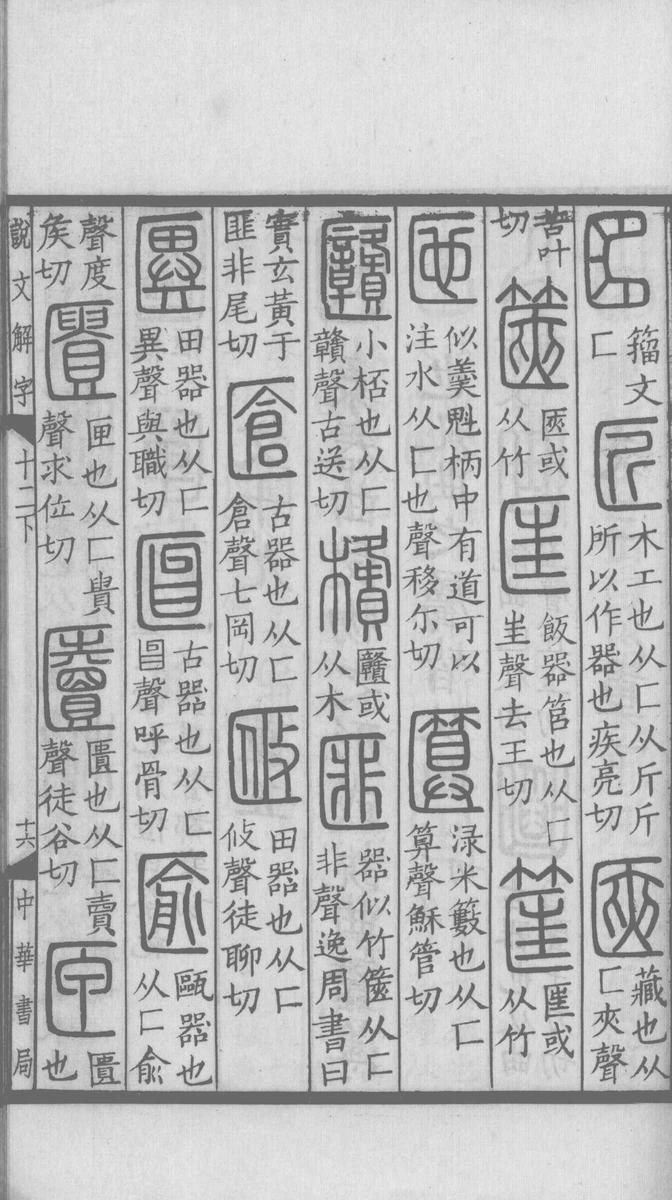 匚籀文匚匠木工也从匚从斤斤所以作器也疾亮切匧藏也从匚夾聲
苦叶切篋匧或从竹匡飯器筥也从匚㞷聲去王切筐匡或从竹
匜似羹魁柄中有道可以注水从匚也聲移尒切匴渌米籔也从匚算聲穌管切
小桮也从匚贛聲古送切或从木匪器似竹筐从匚非聲逸周書曰
實玄黃于匪非尾切匨古器也从匚倉聲七岡切田器也从匚攸聲徒聊切
田器也从匚異聲與職切匫古器也从匚曶聲呼骨切匬甌器也从匚俞
聲度矦切匱匣也从匚貴聲求位切匵匱也从匚賣聲徒谷切匣匱也
說文解字 十二下 十六 中華書局